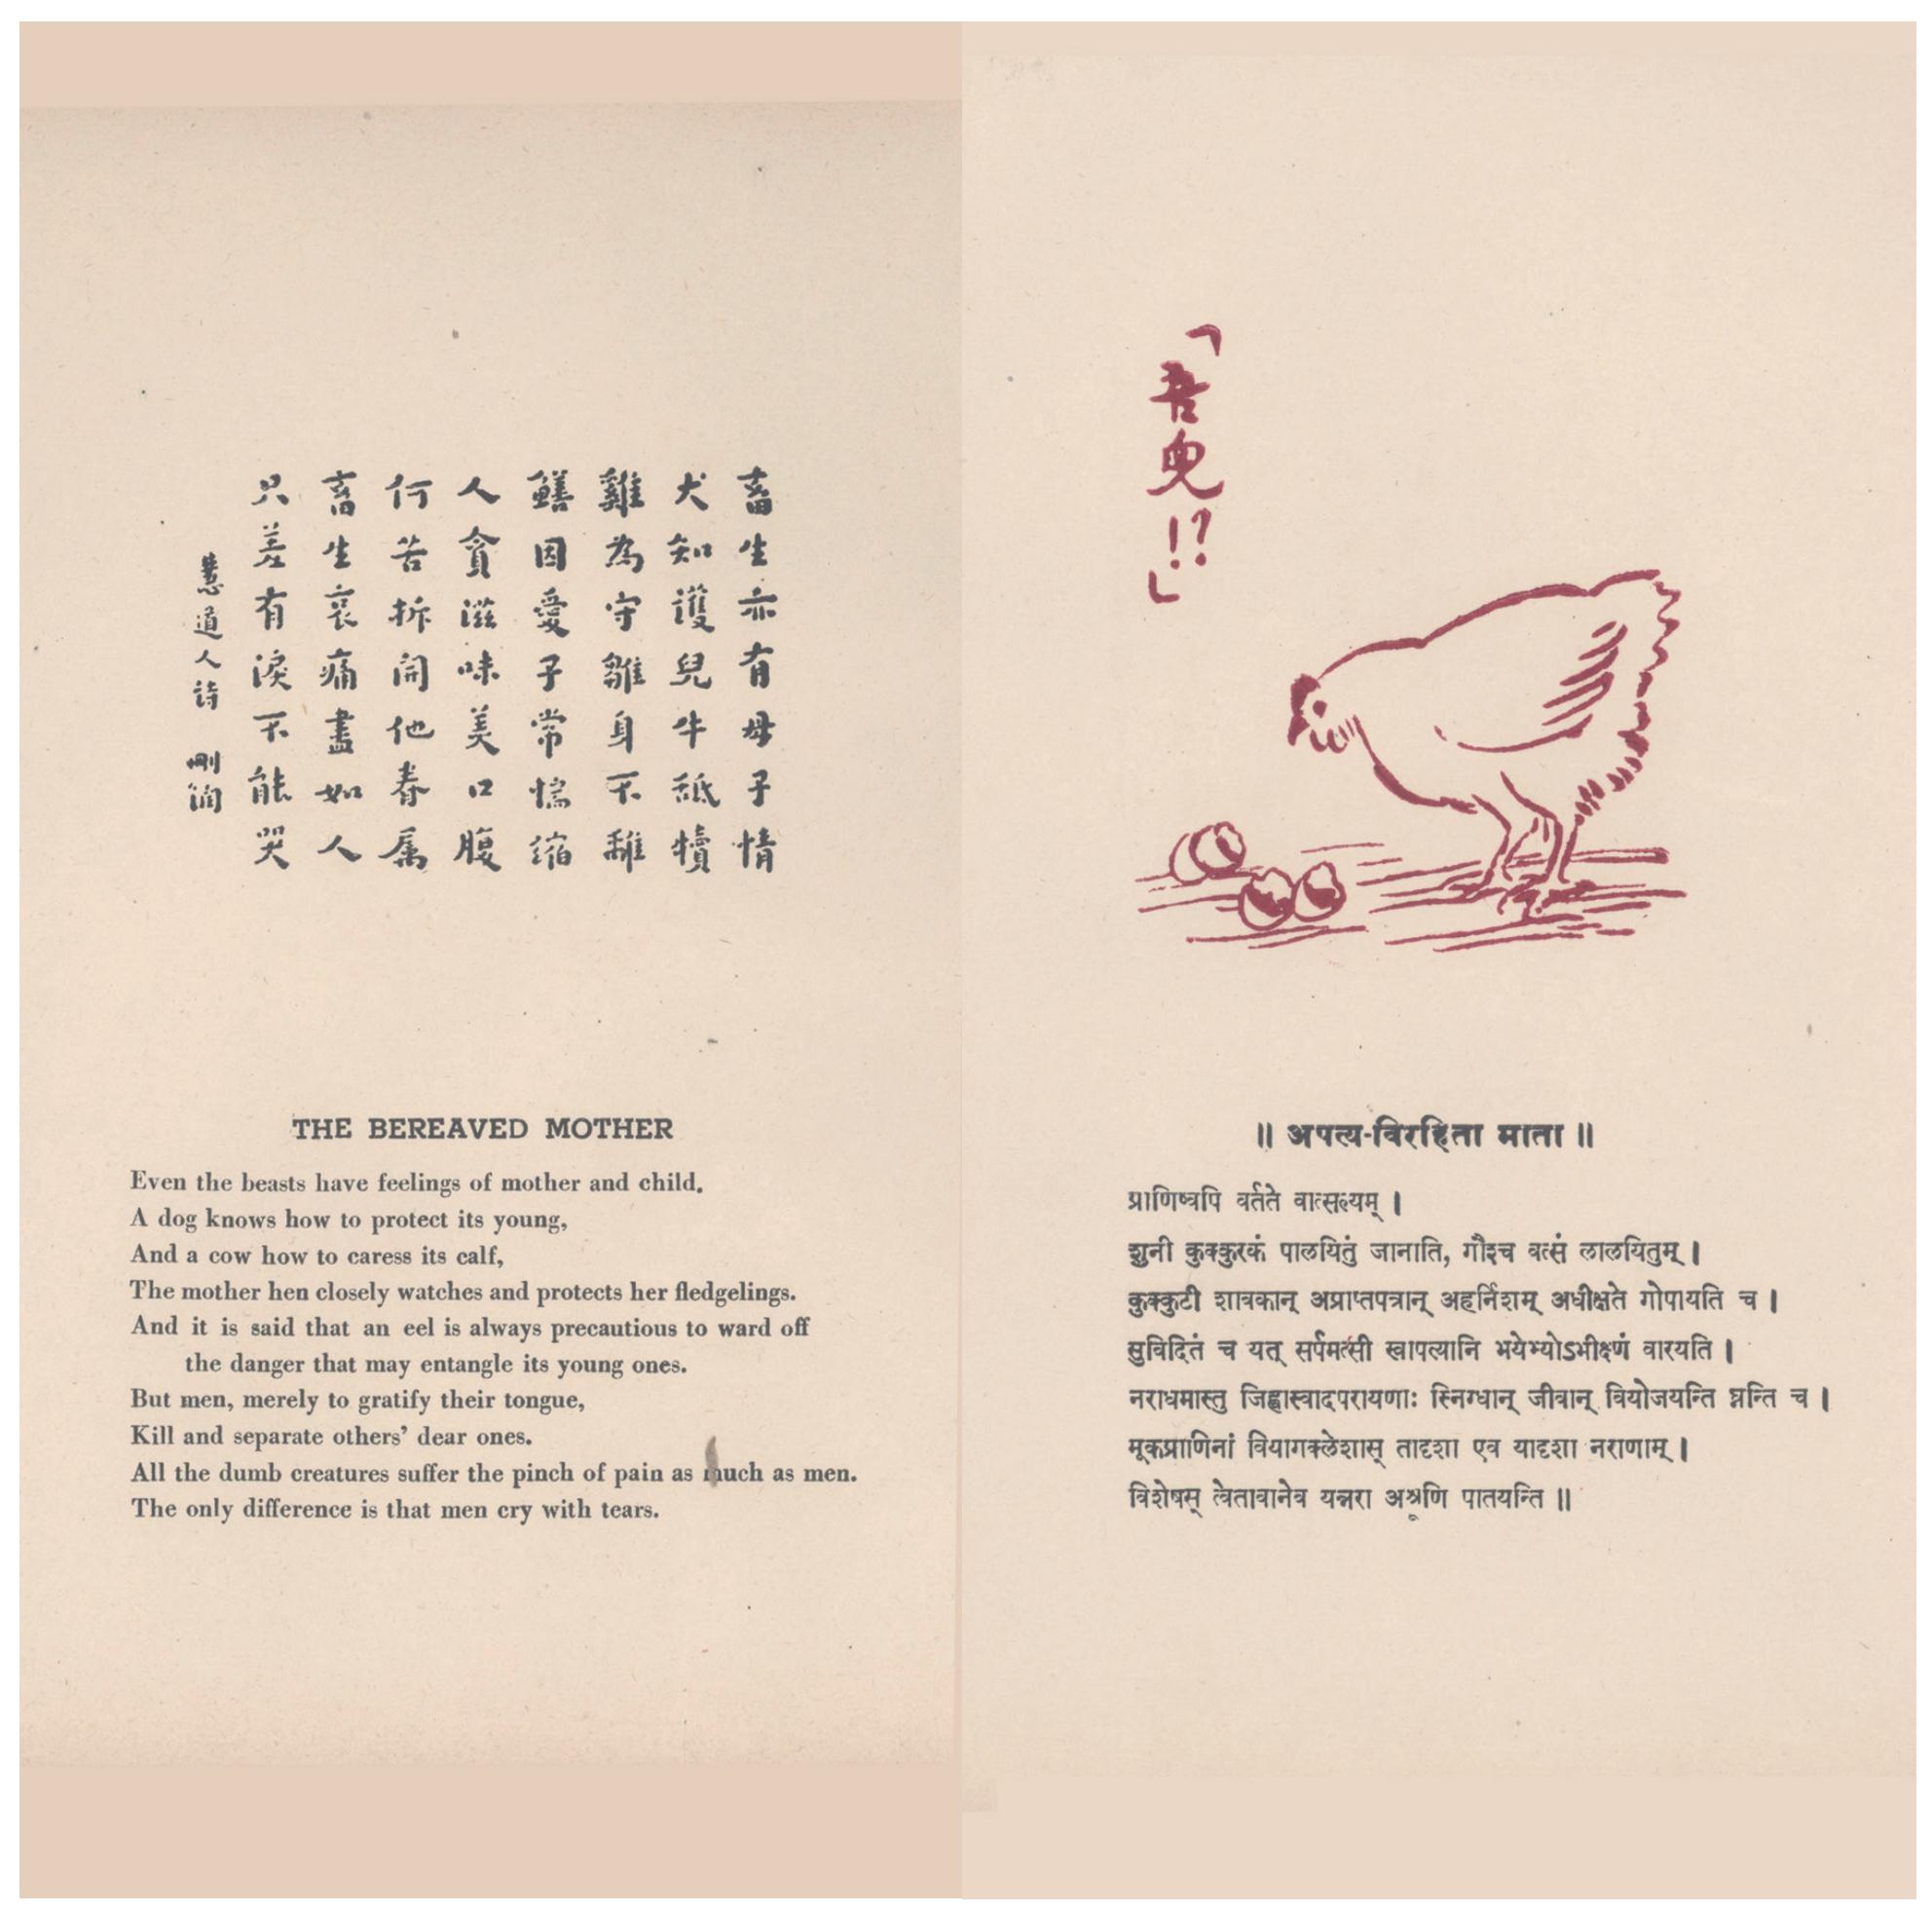 畜生亦有母子情
犬知護兒牛舐犢
雞為守雛身不離
鱔因愛子常惴縮
人貪滋味美口腹
何苦拆開他眷属
畜生哀痛盡如人
只差有淚不能哭
慧道人詩 刪潤
THE BEREAVED MOTHER
Even the beasts have feelings of mother and child.
A dog knows how to protect its young,
And a cow how to caress its calf,
The mother hen closely watches and protects her fledgelings.
And it is said that an eel is always precautious to ward off
the danger that may entangle its young ones.
But men, merely to gratify their tongue,
Kill and separate others' dear ones.
All the dumb creatures suffer the pinch of pain as much as men.
The only difference is that men cry with tears.
「吾兒!?」
॥ अपत्य-विरहिता माता ॥
प्राणिष्वपि वर्तते वात्सल्यम् ।
शुनी कुक्कुरकं पालयितुं जानाति, गौश्च वत्सं लालयितुम् ।
कुक्कुटी शावकान् अप्राप्तपत्रान् अहर्निशम् अधीक्षते गोपायति च ।
सुविदितं च यत् सर्पमत्सी स्वापत्यानि भयेभ्योऽभीक्ष्णं वारयति ।
नराधमास्तु जिह्वास्वादपरायणाः स्निग्धान् जीवान् वियोजयन्ति घ्नन्ति च ।
मूकप्राणिनां वियागक्लेशास् तादृशा एव यादृशा नराणाम् ।
विशेषस् त्वेतावानेव यन्नरा अश्रूणि पातयन्ति ॥